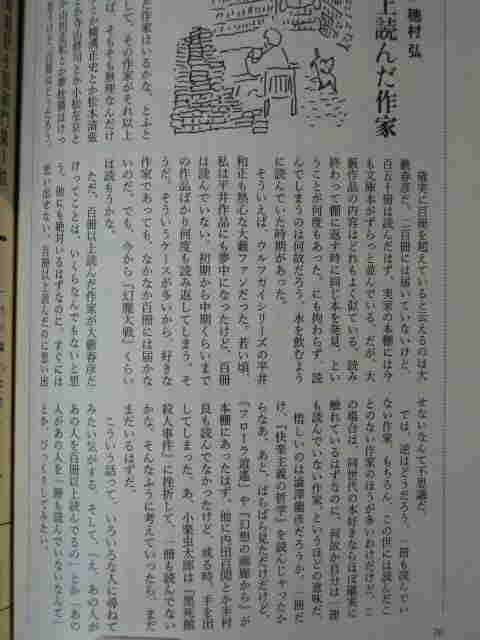 穂村弘
上読んだ作家
だ作家はいるかな、とふと
して、その作家がそれ以上
ば、そもそも無理なんだけ
とか横溝正史とか松本清張
とか寺山修司とか小松左京と
確実に百冊を超えていると云えるのは大
藪春彦だ。二百冊には届いていないけど、
百五十冊は読んだはず。実家の本棚には今
も文庫本がずらっと並んでいる。だが、大
藪作品の内容はどれもよく似ている。読み
終わって棚に返す時に同じ本を発見、とい
うことが何度もあった。にも拘わらず、読
んでしまうのは何故だろう。水を飲むよう
に読んでいた時期があった。
そういえば、ウルフガイシリーズの平井
和正も熱心な大藪ファンだった。若い頃、
私は平井作品にも夢中になったけど、百冊
は読んでいない。初期から中期くらいまで
の作品ばかり何度も読み返してしまう。そ
うだ、そういうケースが多いから、好きな
作家であっても、なかなか百冊には届かな
いのだ。でも、今から『幻魔大戦』くらい
は読もうかな。
ただ、百冊以上読んだ作家が大藪春彦だ
けってことは、いくらなんでもないと思
う。他にも絶対いるはずなのに、すぐには
思い出せない。百冊以上読んだのに思い出
せないなんて不思議だ。
では、逆はどうだろう。一冊も読んでい
ない作家。もちろん、この世には読んだこ
とのない作家のほうが多いわけだけど、こ
の場合は、同世代の本好きならほぼ確実に
触れているはずなのに、何故か自分は一冊
も読んでいない作家、というほどの意味だ。
惜しいのは澁澤龍彦だろうか。一冊だ
け、『快楽主義の哲学』を読んじゃったか
らなあ。あと、ぱらぱら見ただけだけど、
『フローラ逍遥』や『幻想の画廊から』が
本棚にあったはず。他に内田百閒とか半村
良も読んでなかったけど、或る時、手を出
してしまった。あ、小栗虫太郎は『黒死館
殺人事件』に挫折して、一冊も読んでない
かな。そんなふうに考えていったら、まだ
まだいるはずだ。
こういう話って、いろいろな人に尋ねて
みたい気がする。そして、「え、あの人が
あの人を百冊以上読んでるの」とか「あの
人があの人を一冊も読んでいないなんて」
とか、びっくりしてみたい。